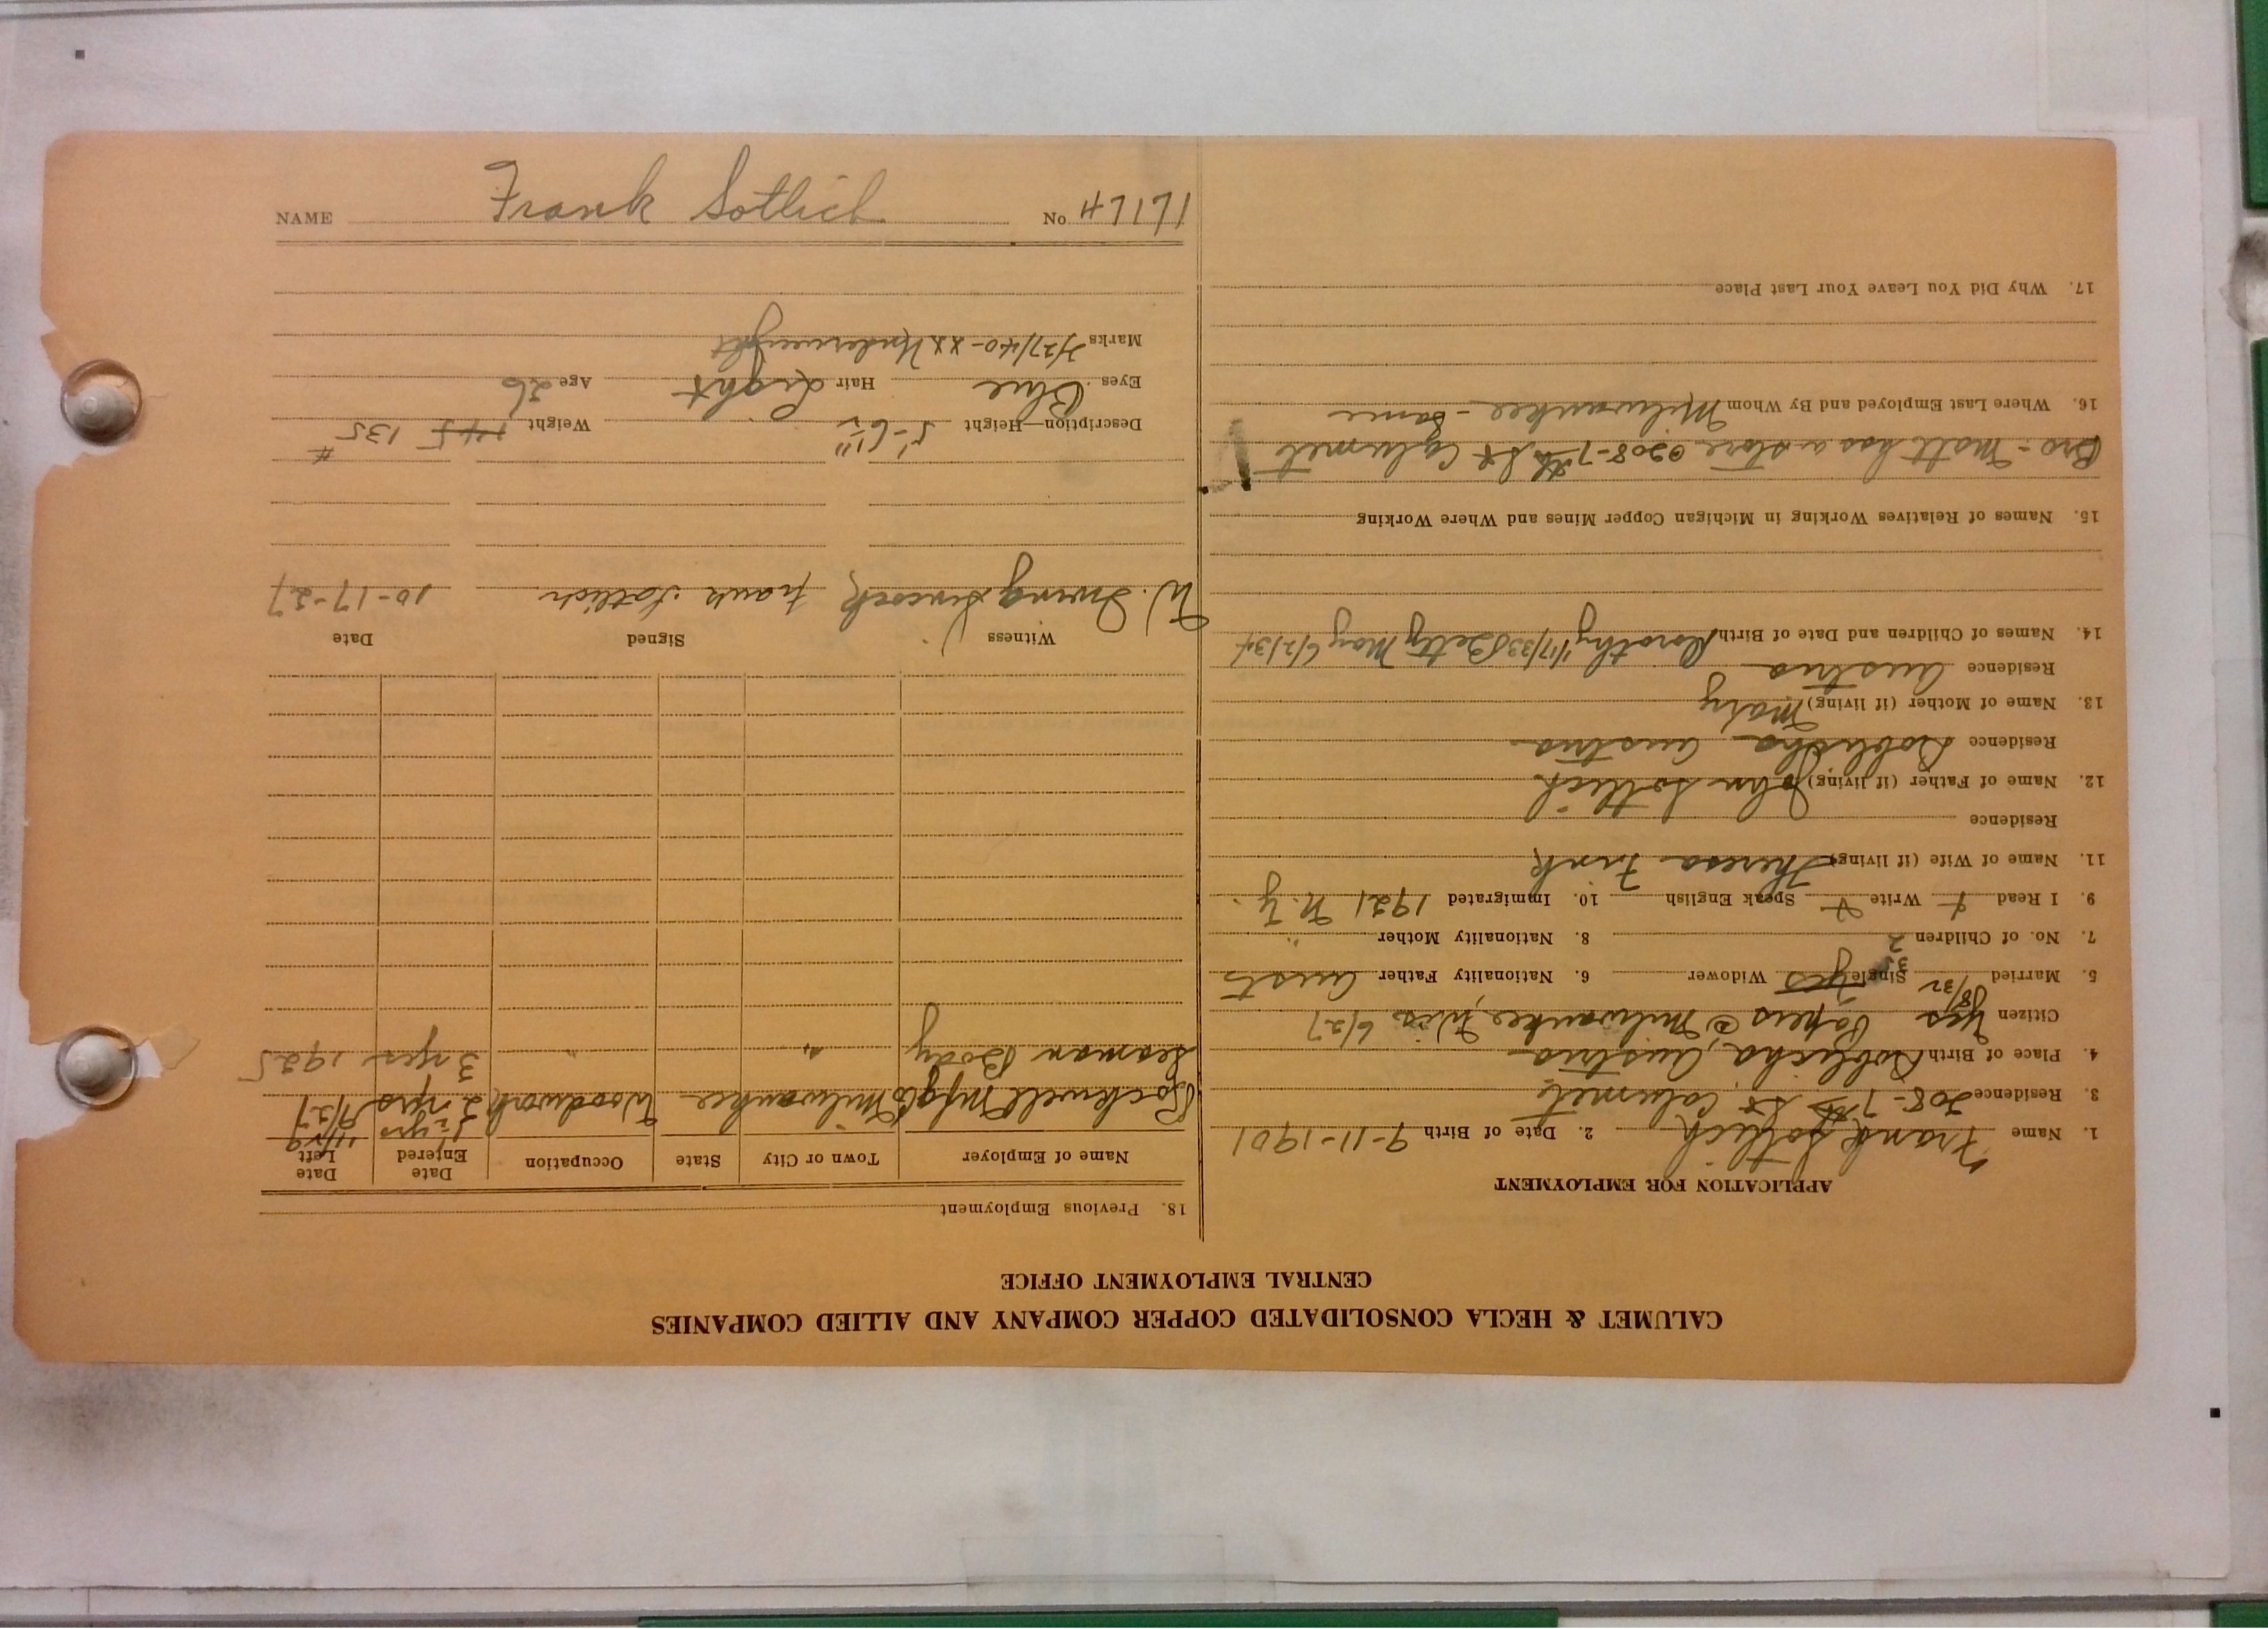 NAME Frank Sotlich No 47171
CALUMET & HECLA CONSOLIDATED COPPER COMPANY AND ALLIED COMPANIES
CENTRAL EMPLOYMENT OFFICE
APPLICATION FOR EMPLOYMENT
1. Name Frank Sotlich 2. Date of Birth 9-11-1901
3. Residence 308-7th St Calumet
4. Place of Birth Doblicha, Austria
Citizen Yes Papers Milwaukee, Wis 6/27
5. Married 8/32 Single Yes Widower 6. Nationality Father Aust
7. No. of Children 2 3 8. Nationality Mother "
9. I Read + Write + Speak English 10. Immigrated 1921 N.Y.
11. Name of Wife (if living) Theresa Fink
Residence
12. Name of Father (if living) John Sotlich
Residence Doblicha Austria
13. Name of Mother (if living) Mary
Residence Austria
14. Names of Children and Date of Birth Dorothy 1/17/33 Betty May 6/2/34
15. Names of Relatives Working in Michigan Copper Mines and Where Working
Bro - Matt has a store @308-7th St Calumet
16. Where Last Employed and By Whom Milwaukee - Same
17. Why Did You Leave Your Last Place
18. Previous Employment
Name of Employer Town or City State Occupation Date Entered Date Left
1½ yrs 11/29
Rockwell Mfg Co Milwaukee Woodwork 2 yrs 9/27
Seaman Body " " 3 yrs 1925
Witness Signed Date
W. Irving Sincock Frank Sotlich 10-17-27
Description—Height 5'-6½" Weight 145 135 #
Eyes Blue Hair Light Age 26
Marks 2/27/40-xx Underweight